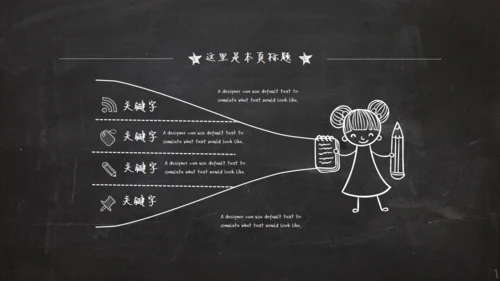 这里是本页标题
A designer can use default text to
simulate what text would look like.
关键字
关键字
A designer can use default text to
simulate what text would look like.
关键字
A designer can use default text to
simulate what text would look like.
关键字
A designer can use default text to
simulate what text would look like.